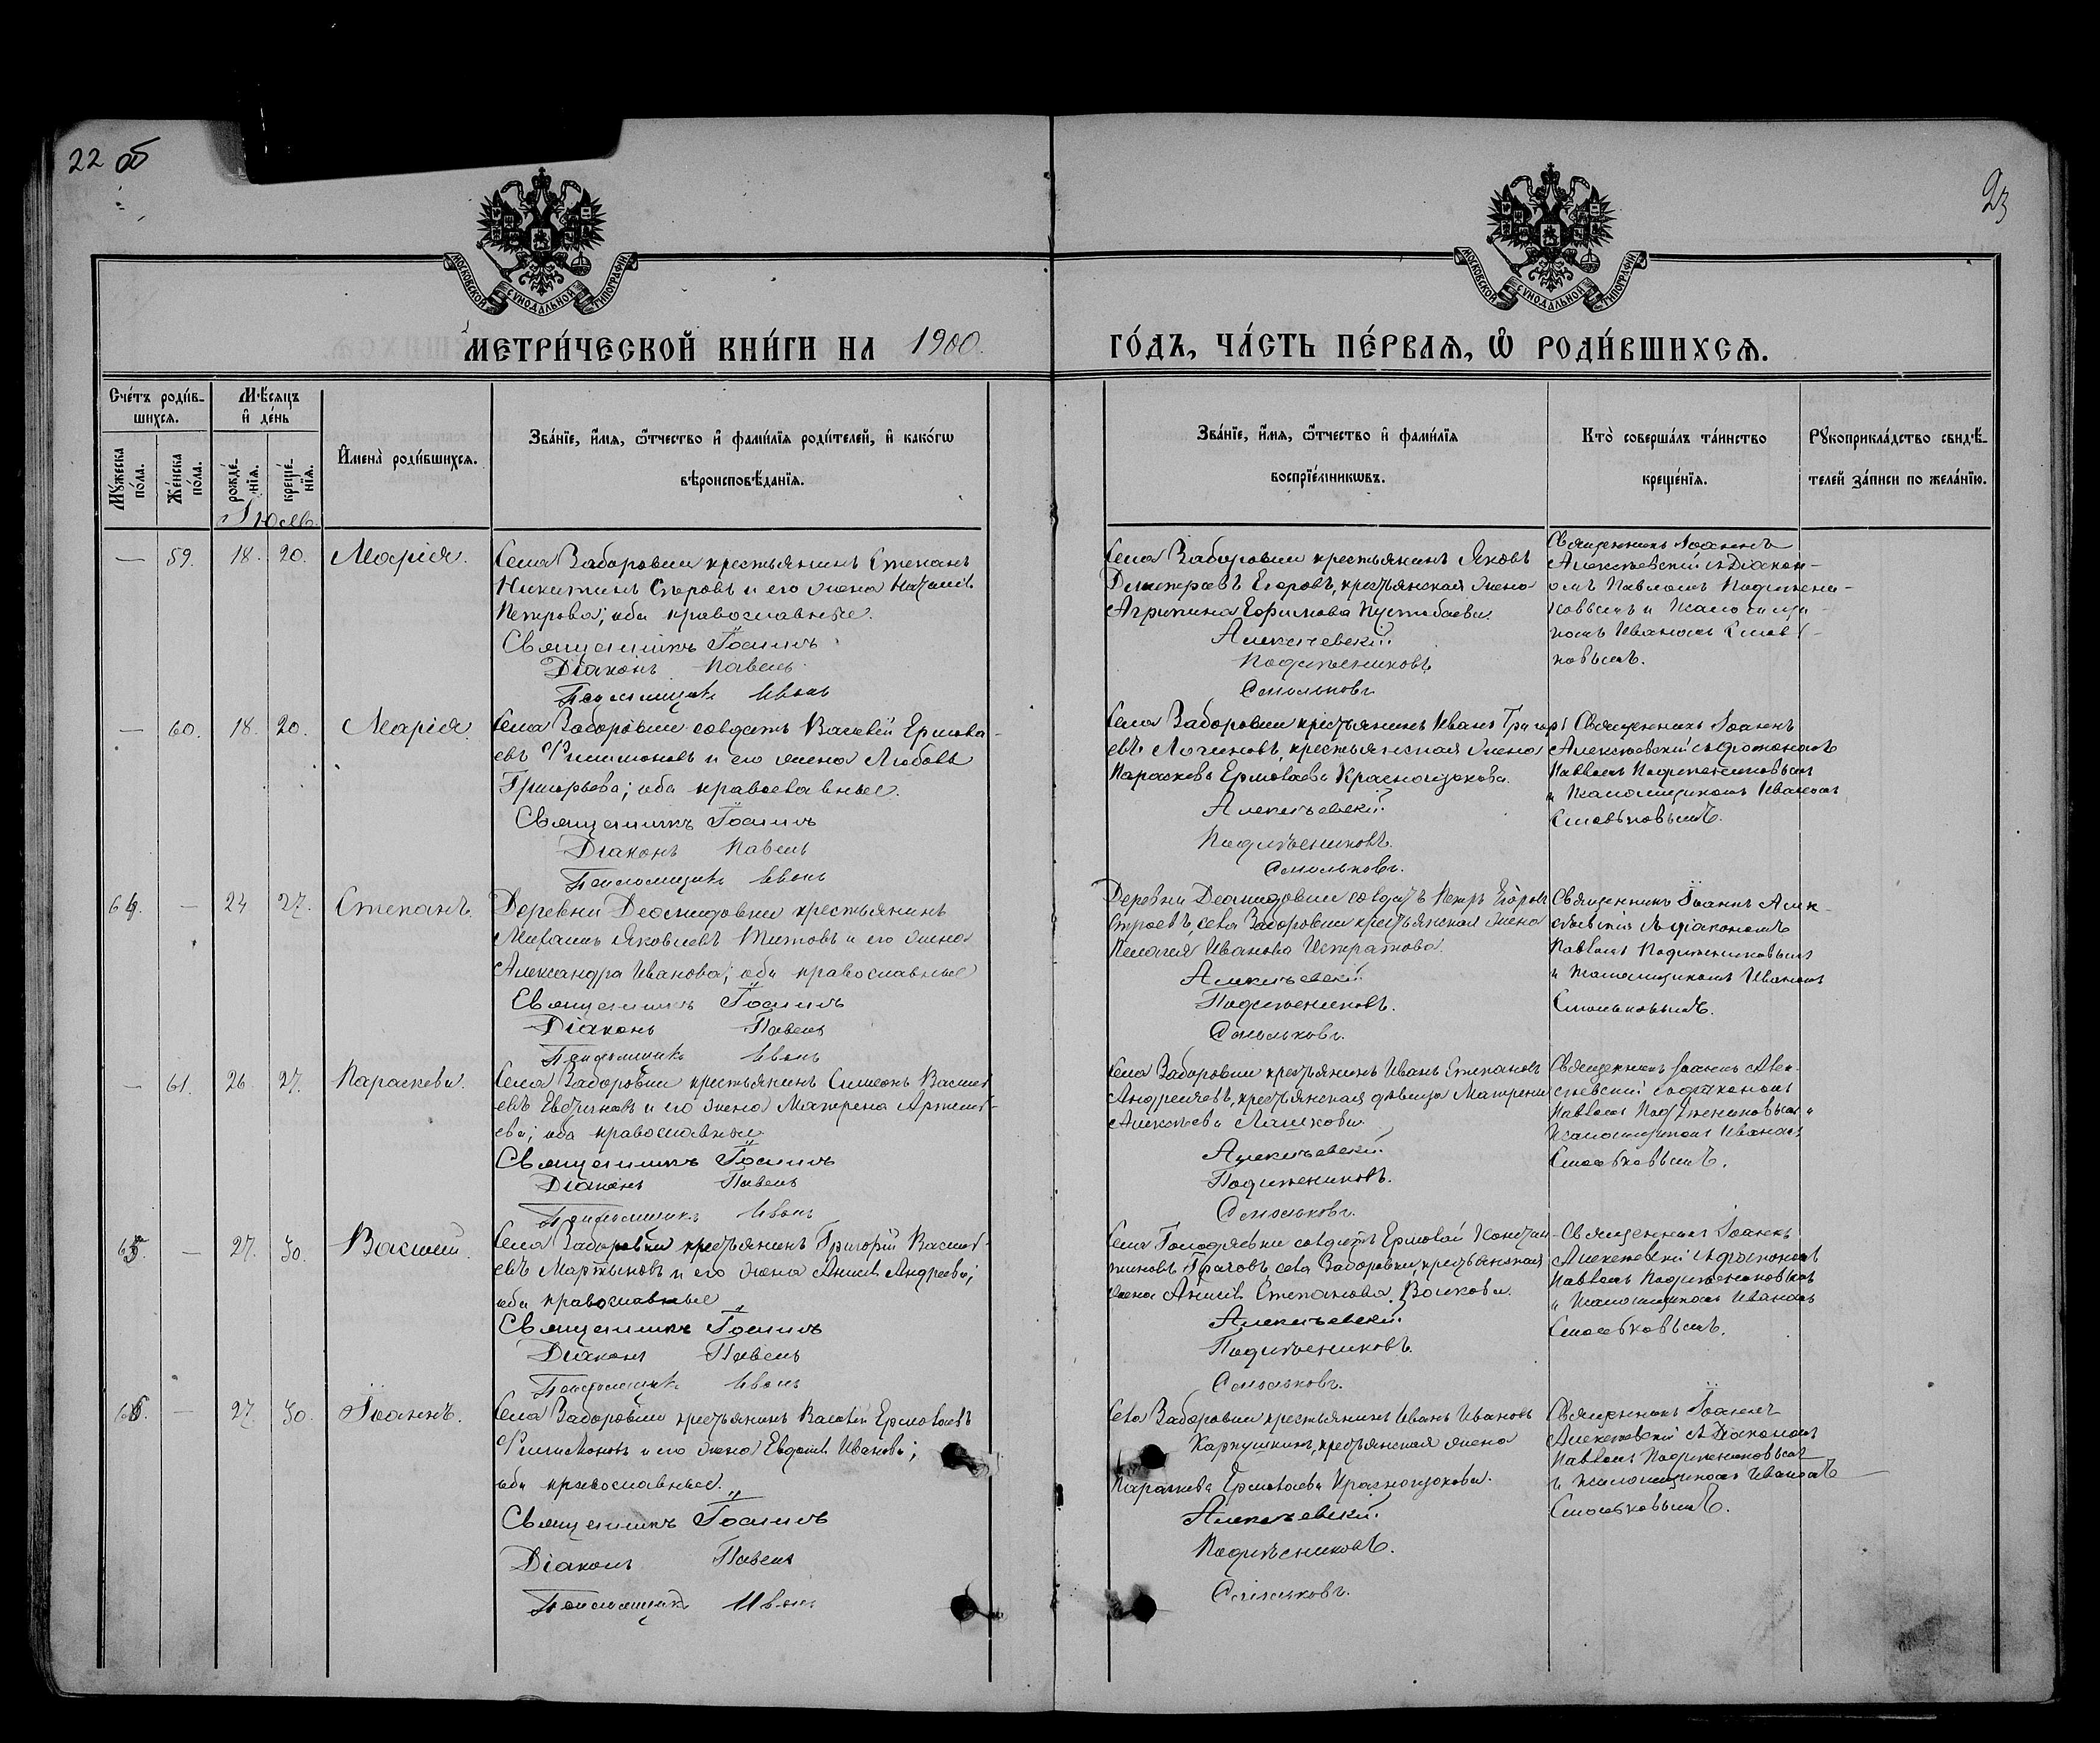 22 об
23
МОСКОВСКОЙ СѴНОДАЛЬНОЙ ТИПОГРАФІИ
МОСКОВСКОЙ СѴНОДАЛЬНОЙ ТИПОГРАФІИ
МЕТРИ́ЧЕСКОЙ КНИ́ГИ НА 1900.
ГО́ДЪ, ЧА́СТЬ ПЕ́РВАЯ, Ѡ҆ РОДИ́ВШИХСѦ.
Сче́тъ роди́в-
шихсѧ.
Мѣ́сяцъ
и҆ де́нь
Мꙋ́жеска
по́ла.
Же́нска
по́ла.
рожде́-
нїѧ.
креще́-
нїѧ.
Іюль.
И҆мена̀ роди́вшихсѧ.
Зва́нїе, и҆́мѧ, ѻ҆́тчество и҆ фами́лїѧ роди́телей, и҆ како́гѡ
вѣроисповѣ́данїѧ.
Зва́нїе, и҆́мѧ, ѻ҆́тчество и҆ фами́лїѧ
воспрїе́мникѡвъ.
Кто̀ соверша́лъ та́инство
креще́нїѧ.
Рꙋкоприкла́дство свидѣ́-
телей за́писи по жела́нїю.
— 59. 18. 20. Марія.
Села Заборовки крестьянинъ Степанъ
Никитинъ и его жена
Петрова; оба православные.
Священникъ Іоаннъ
Діаконъ Павелъ
Псаломщикъ Иванъ
Села Заборовки крестьянинъ Яковъ
Димитріевъ Егоровъ, крестьянская жена
Агрипина Ефимова Пустобаева.
Алексѣевскій.
Подлѣсниковъ.
Смольковъ.
Священникъ Іоаннъ
Алексѣевскій съ Діакон-
омъ Павломъ Подлѣсни-
ковымъ и псаломщи-
комъ Иваномъ Смоль-
ковымъ.
— 60. 18. 20. Марія.
Села Заборовки солдатъ Василій Ермола-
евъ Филимоновъ и его жена Любовь
Григорьева; оба православные.
Священникъ Іоаннъ
Діаконъ Павелъ
Псаломщикъ Иванъ
Села Заборовки крестьянинъ Иванъ Григорь-
евъ Логиновъ, крестьянская жена
Параскева Ермолаева Краснощокова.
Алексѣевскій.
Подлѣсниковъ.
Смольковъ.
Священникъ Іоаннъ
Алексѣевскій съ діакономъ
Павломъ Подлѣсниковымъ
и псаломщикомъ Иваномъ
Смольковымъ.
64. — 24 27. Степанъ.
Деревни Демидовки крестьянинъ
Михаилъ Яковлевъ Титовъ и его жена
Александра Иванова; оба православные
Священникъ Іоаннъ
Діаконъ Павелъ
Псаломщикъ Иванъ
Деревни Демидовки солдатъ Петръ Егоровъ
села Заборовки крестьянская жена
Пелагея Иванова
Алексѣевскій.
Подлѣсниковъ.
Смольковъ.
Священникъ Іоаннъ Алек-
сѣевскій съ діакономъ
Павломъ Подлѣсниковымъ
и псаломщикомъ Иваномъ
Смольковымъ.
— 61. 26. 27. Параскева.
Села Заборовки крестьянинъ Симеонъ Василь-
евъ и его жена Матрена Артемь-
ева; оба православные
Священникъ Іоаннъ
Діаконъ Павелъ
Псаломщикъ Иванъ
Села Заборовки крестьянинъ Иванъ Степановъ
Андреяновъ, крестьянская дѣвица Матрена
Алексѣева Лашкова.
Алексѣевскій.
Подлѣсниковъ.
Смольковъ.
Священникъ Іоаннъ Алек-
сѣевскій съ діакономъ
Павломъ Подлѣсниковымъ и
псаломщикомъ Иваномъ
Смольковымъ.
65. — 27. 30. Василій.
Села Заборовки крестьянинъ Григорій Василь-
евъ Мартыновъ и его жена Анисія Андреева;
оба православные
Священникъ Іоаннъ
Діаконъ Павелъ
Псаломщикъ Иванъ
Села солдатъ Ермолай Констан-
тиновъ Грачовъ, села Заборовки, крестьянская
жена Анисія Степанова Волкова.
Алексѣевскій.
Подлѣсниковъ.
Смольковъ.
Священникъ Іоаннъ
Алексѣевскій съ діакономъ
Павломъ Подлѣсниковымъ
и псаломщикомъ Иваномъ
Смольковымъ.
66. — 27. 30. Іоаннъ.
Села Заборовки крестьянинъ Василій Ермолаевъ
Филимоновъ и его жена Евдокія Иванова;
оба православные.
Священникъ Іоаннъ
Діаконъ Павелъ
Псаломщикъ Иванъ
Села Заборовки крестьянинъ Иванъ Ивановъ
Карпушкинъ, крестьянская жена
Параскева Ермолаева Краснощокова.
Алексѣевскій.
Подлѣсниковъ.
Смольковъ.
Священникъ Іоаннъ
Алексѣевскій съ Діакономъ
Павломъ Подлѣсниковымъ
и псаломщикомъ Иваномъ
Смольковымъ.